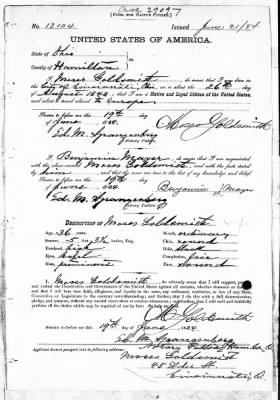 Case 29097
[FORM FOR NATIVE CITIZEN.]
No. 12104 Issued June 21/84
UNITED STATES OF AMERICA.
State of Ohio
County of Hamilton
I, Moses Goldsmith, do swear that I was born in the
City of Cincinnati, Ohio, on or about the 26th day of
August 1848; that I am a Native and Loyal Citizen of the United States,
and about to travel to Europe
Sworn to before me this 19th day
of June 1884.
Ed. M. Spangenberg
Notary Public
Moses Goldsmith
I, Benjamin Mayer, do swear that I am acquainted
with the above named Moses Goldsmith, and with the facts stated
by him, and that they are true to the best of my knowledge and belief.
Sworn to before me this 19th day
of June 1884.
Ed. M. Spangenberg
Notary Public.
Benjamin Mayer
DESCRIPTION OF Moses Goldsmith
Age, 36 years. Mouth, ordinary
Stature, 5 feet, inches, Eng. Chin, round
Forehead, high Hair, black
Eyes, hazel Complexion, fair
Nose, prominent Face, round
I, Moses Goldsmith, do solemnly swear that I will support, protect
and defend the Constitution and Government of the United States against all enemies, whether domestic or foreign;
and that I will bear true faith, allegiance, and loyalty to the same, any ordinance, resolution, or law of any State,
Convention, or Legislature to the contrary notwithstanding; and further, that I do this with a full determination,
pledge, and purpose, without any mental reservation or evasion whatsoever; and further, that I will well and faithfully
perform all the duties which may be required of me by law: So help me God.
M. Goldsmith
Sworn to before me this 19th day of June 1884
Ed. M. Spangenberg
Notary Public, Ham. Co. O.
Applicant desires passport sent to following address:
Moses Goldsmith
St
Cincinnati, O.